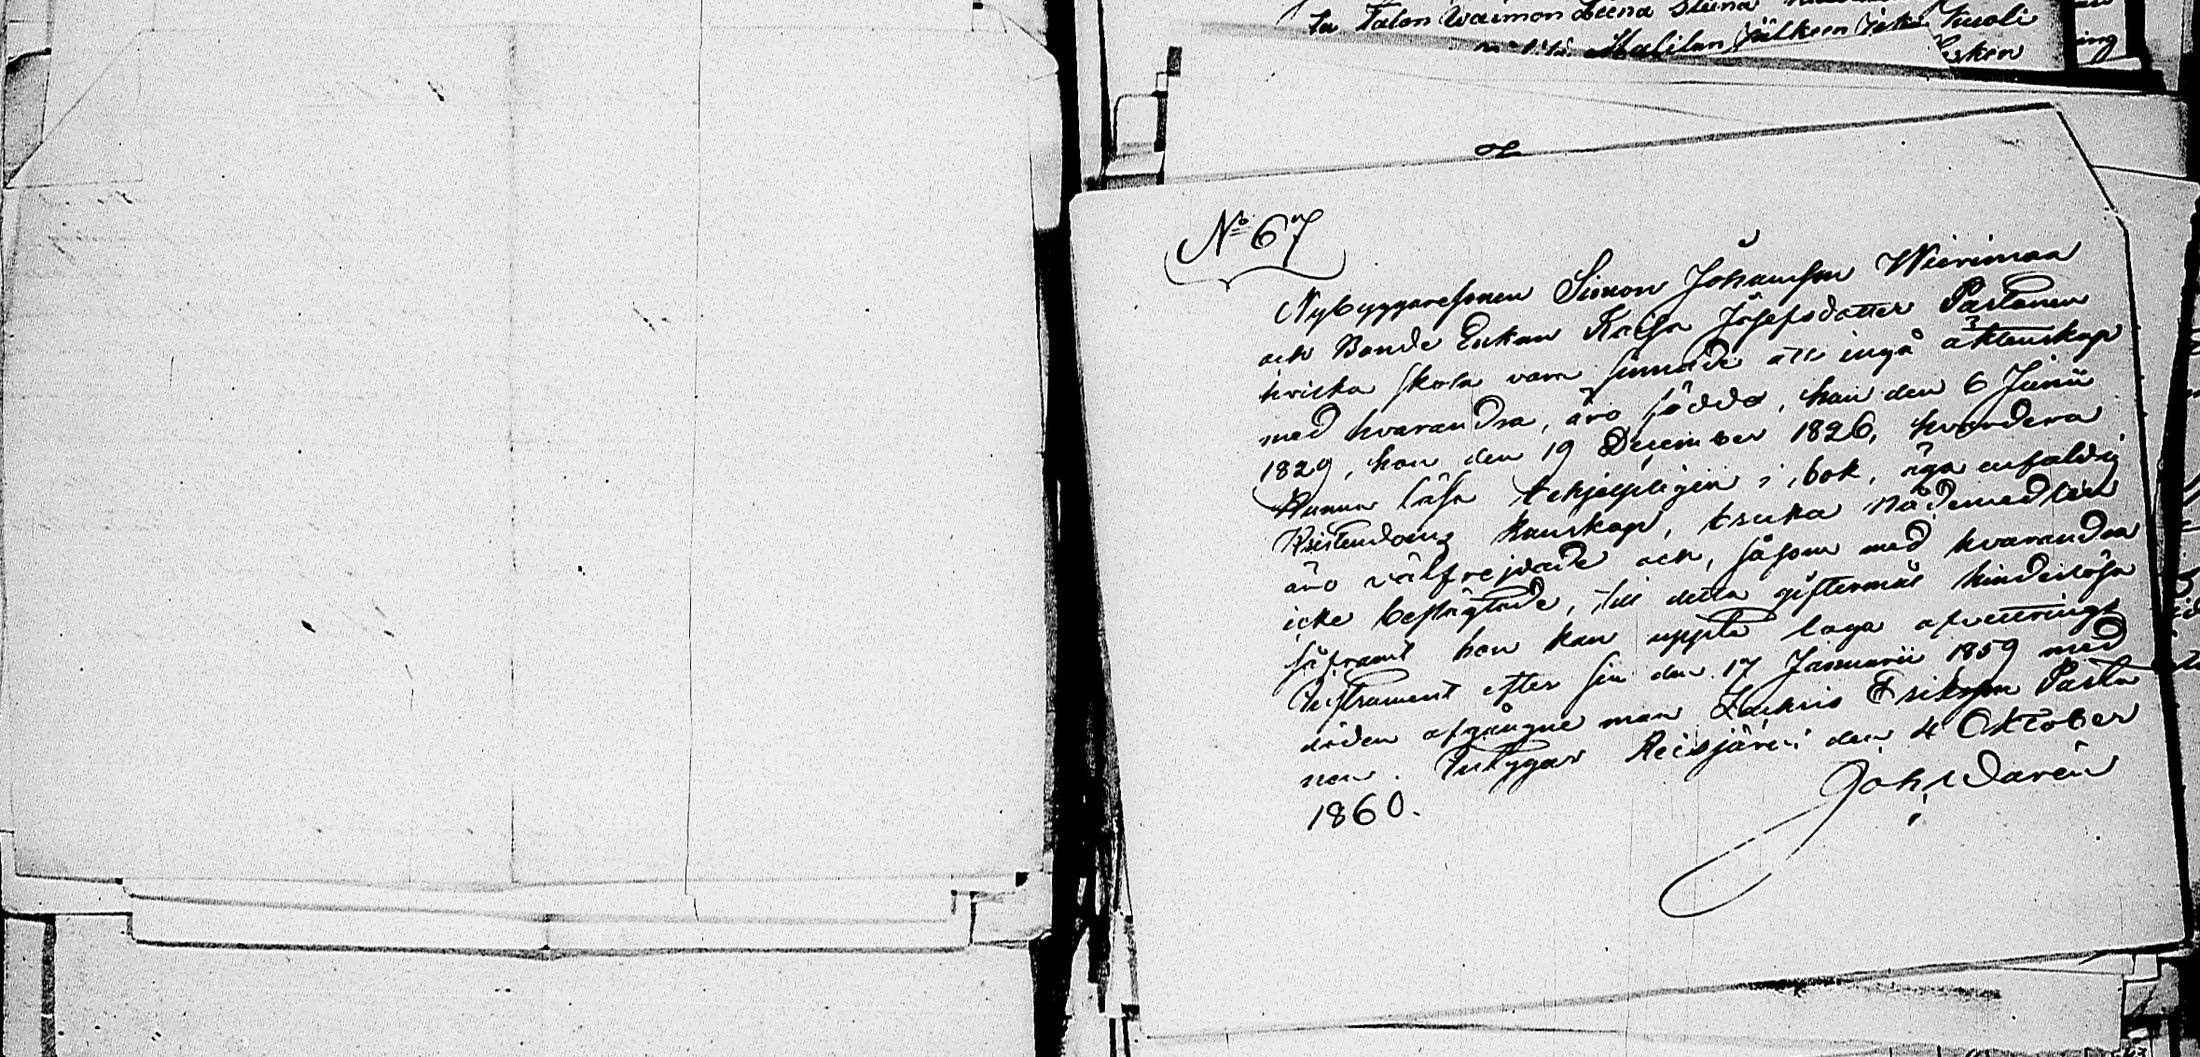 ta Talon Waimon Leena Stina
Matilan jälkeen joka kuoli
esken
ing
No 67
Nybyggaresonen Simon Johansson Wierimaa
och Bonde Enkan Kaisa Josefsdotter Pastanen
hvilka skola vara sinnade att ingå äktenskap
med hvarandra, äro födda, han den 6 Junii
1829, hon den 19 December 1826, hvardera
kunna läsa tehjelpligen i bok, äga enfaldig
Kristendoms kunskap, bruka nådemedlen
äro välfrejdade och, såsom med hvarandra
icke beslägtade, till detta giftermål hinderlösa
såframt hon kan uppte laga afvittrings
Instrument efter sin den 17 Januarii 1859 med
döden afgångne man Zackris Eriksson Pasta
nen. Intygar Reisjärvi den 4 Oktober
1860.
Joh Wdarén